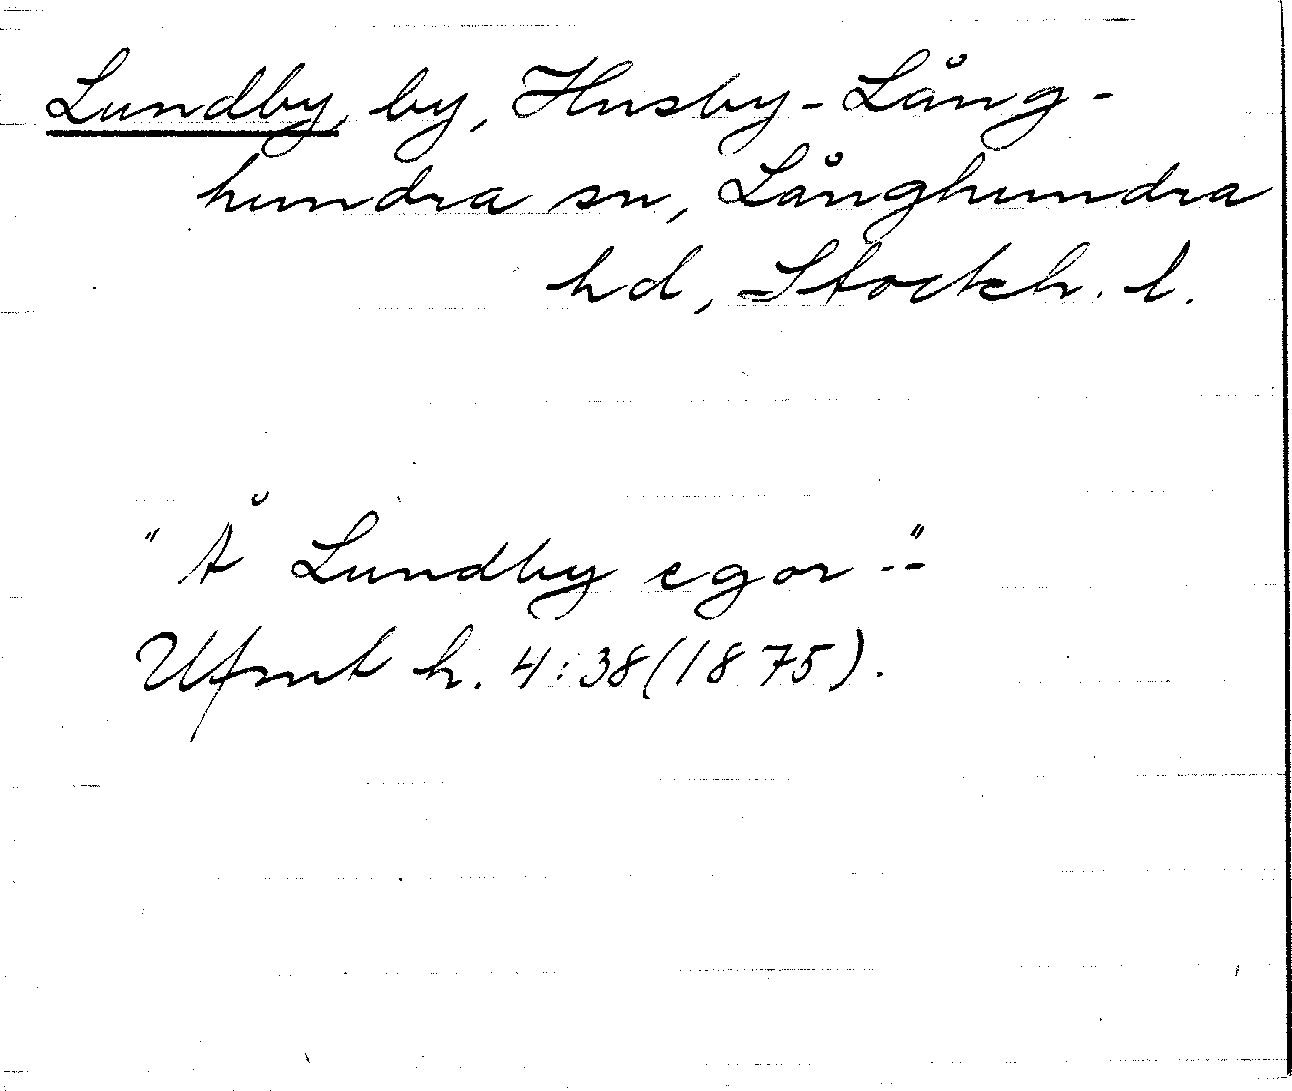 Lundby, by, Husby-Lång-
hundra sn, Långhundra
hd, Stockh. l.
"Å Lundby egor --"
Ufmt h. 4:38(1875).